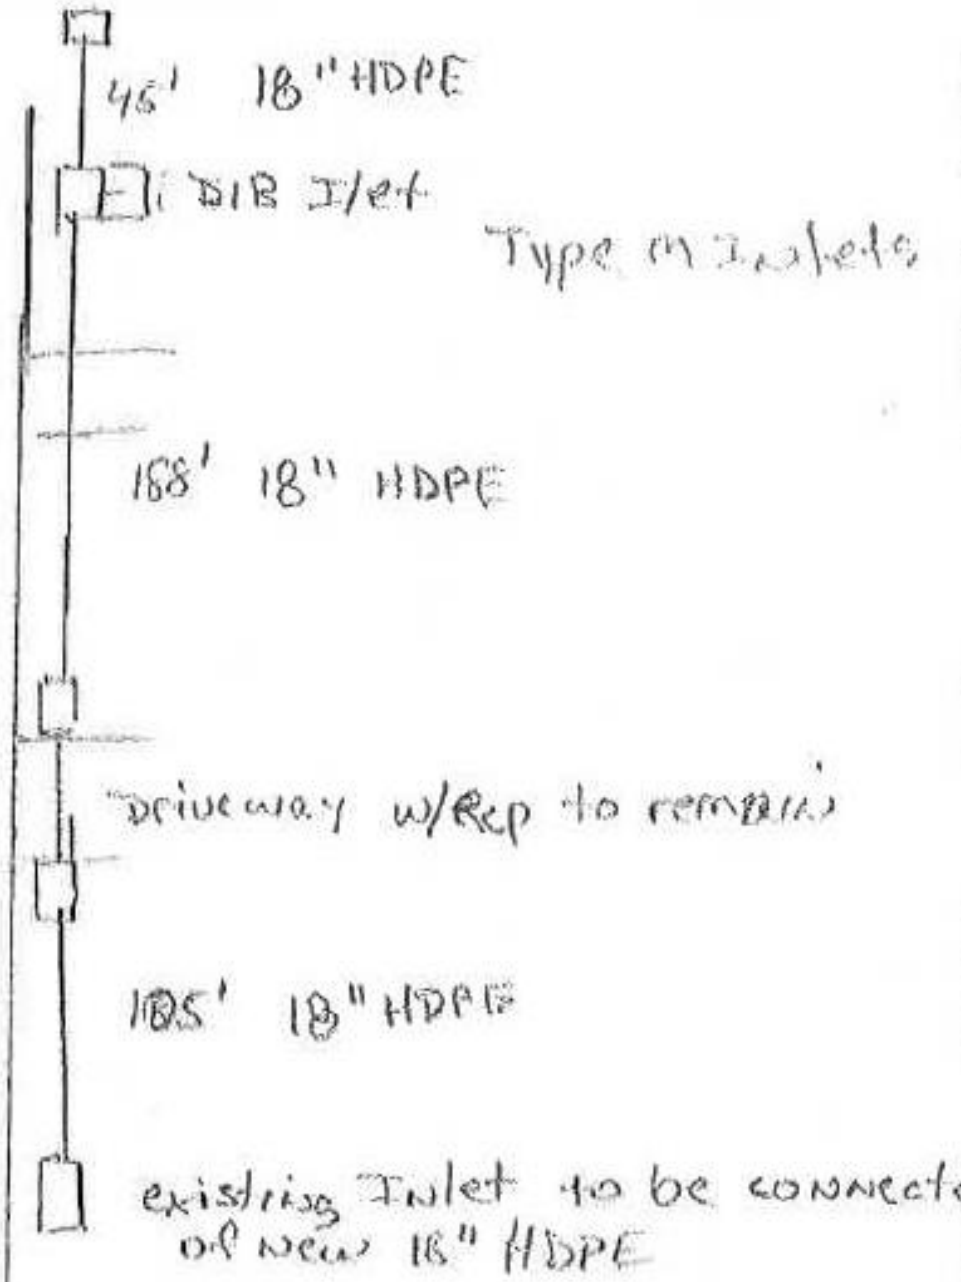 45' 18" HDPE
DIB I/et
Type M Inlets
188' 18" HDPE
Driveway w/Rcp to remain
105' 18" HDPE
existing Inlet to be connecte
of New 18" HDPE